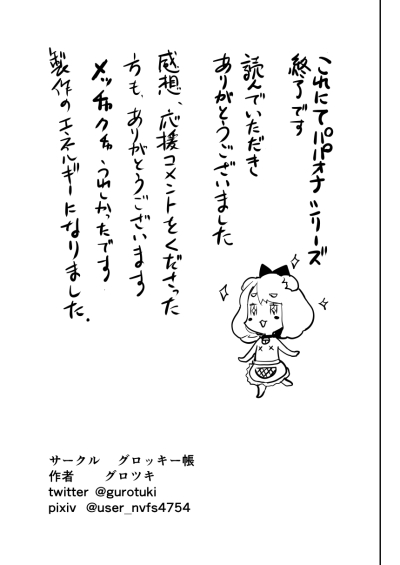 これにてパパオナシリーズ
終了です
読んでいただき
ありがとうございました
感想、応援コメントをくださった
方も、ありがとうございます
メッチャクチャうれしかったです
製作のエネルギーになりました.
サークル グロッキー帳
作者 グロツキ
twitter @gurotuki
pixiv @user_nvfs4754